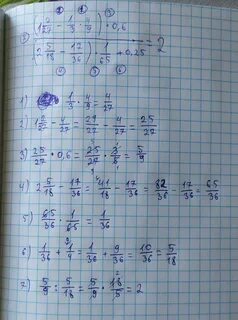 ② ① ③
(1 2/27 - 1/3 · 4/9) · 0,6
(2 5/18 - 17/36) · 1/65 + 0,25 = 2
④ ⑤ ⑥
1) 1/3 · 4/9 = 4/27
2) 1 2/27 - 4/27 = 29/27 - 4/27 = 25/27
3) 25/27 · 0,6 = 25/27 · 3/5 = 5/9
4) 2 5/18 - 17/36 = 41/18 - 17/36 = 82/36 - 17/36 = 65/36
5) 65/36 · 1/65 = 1/36
6) 1/36 + 1/4 = 1/36 + 9/36 = 10/36 = 5/18
7) 5/9 : 5/18 = 5/9 · 18/5 = 2